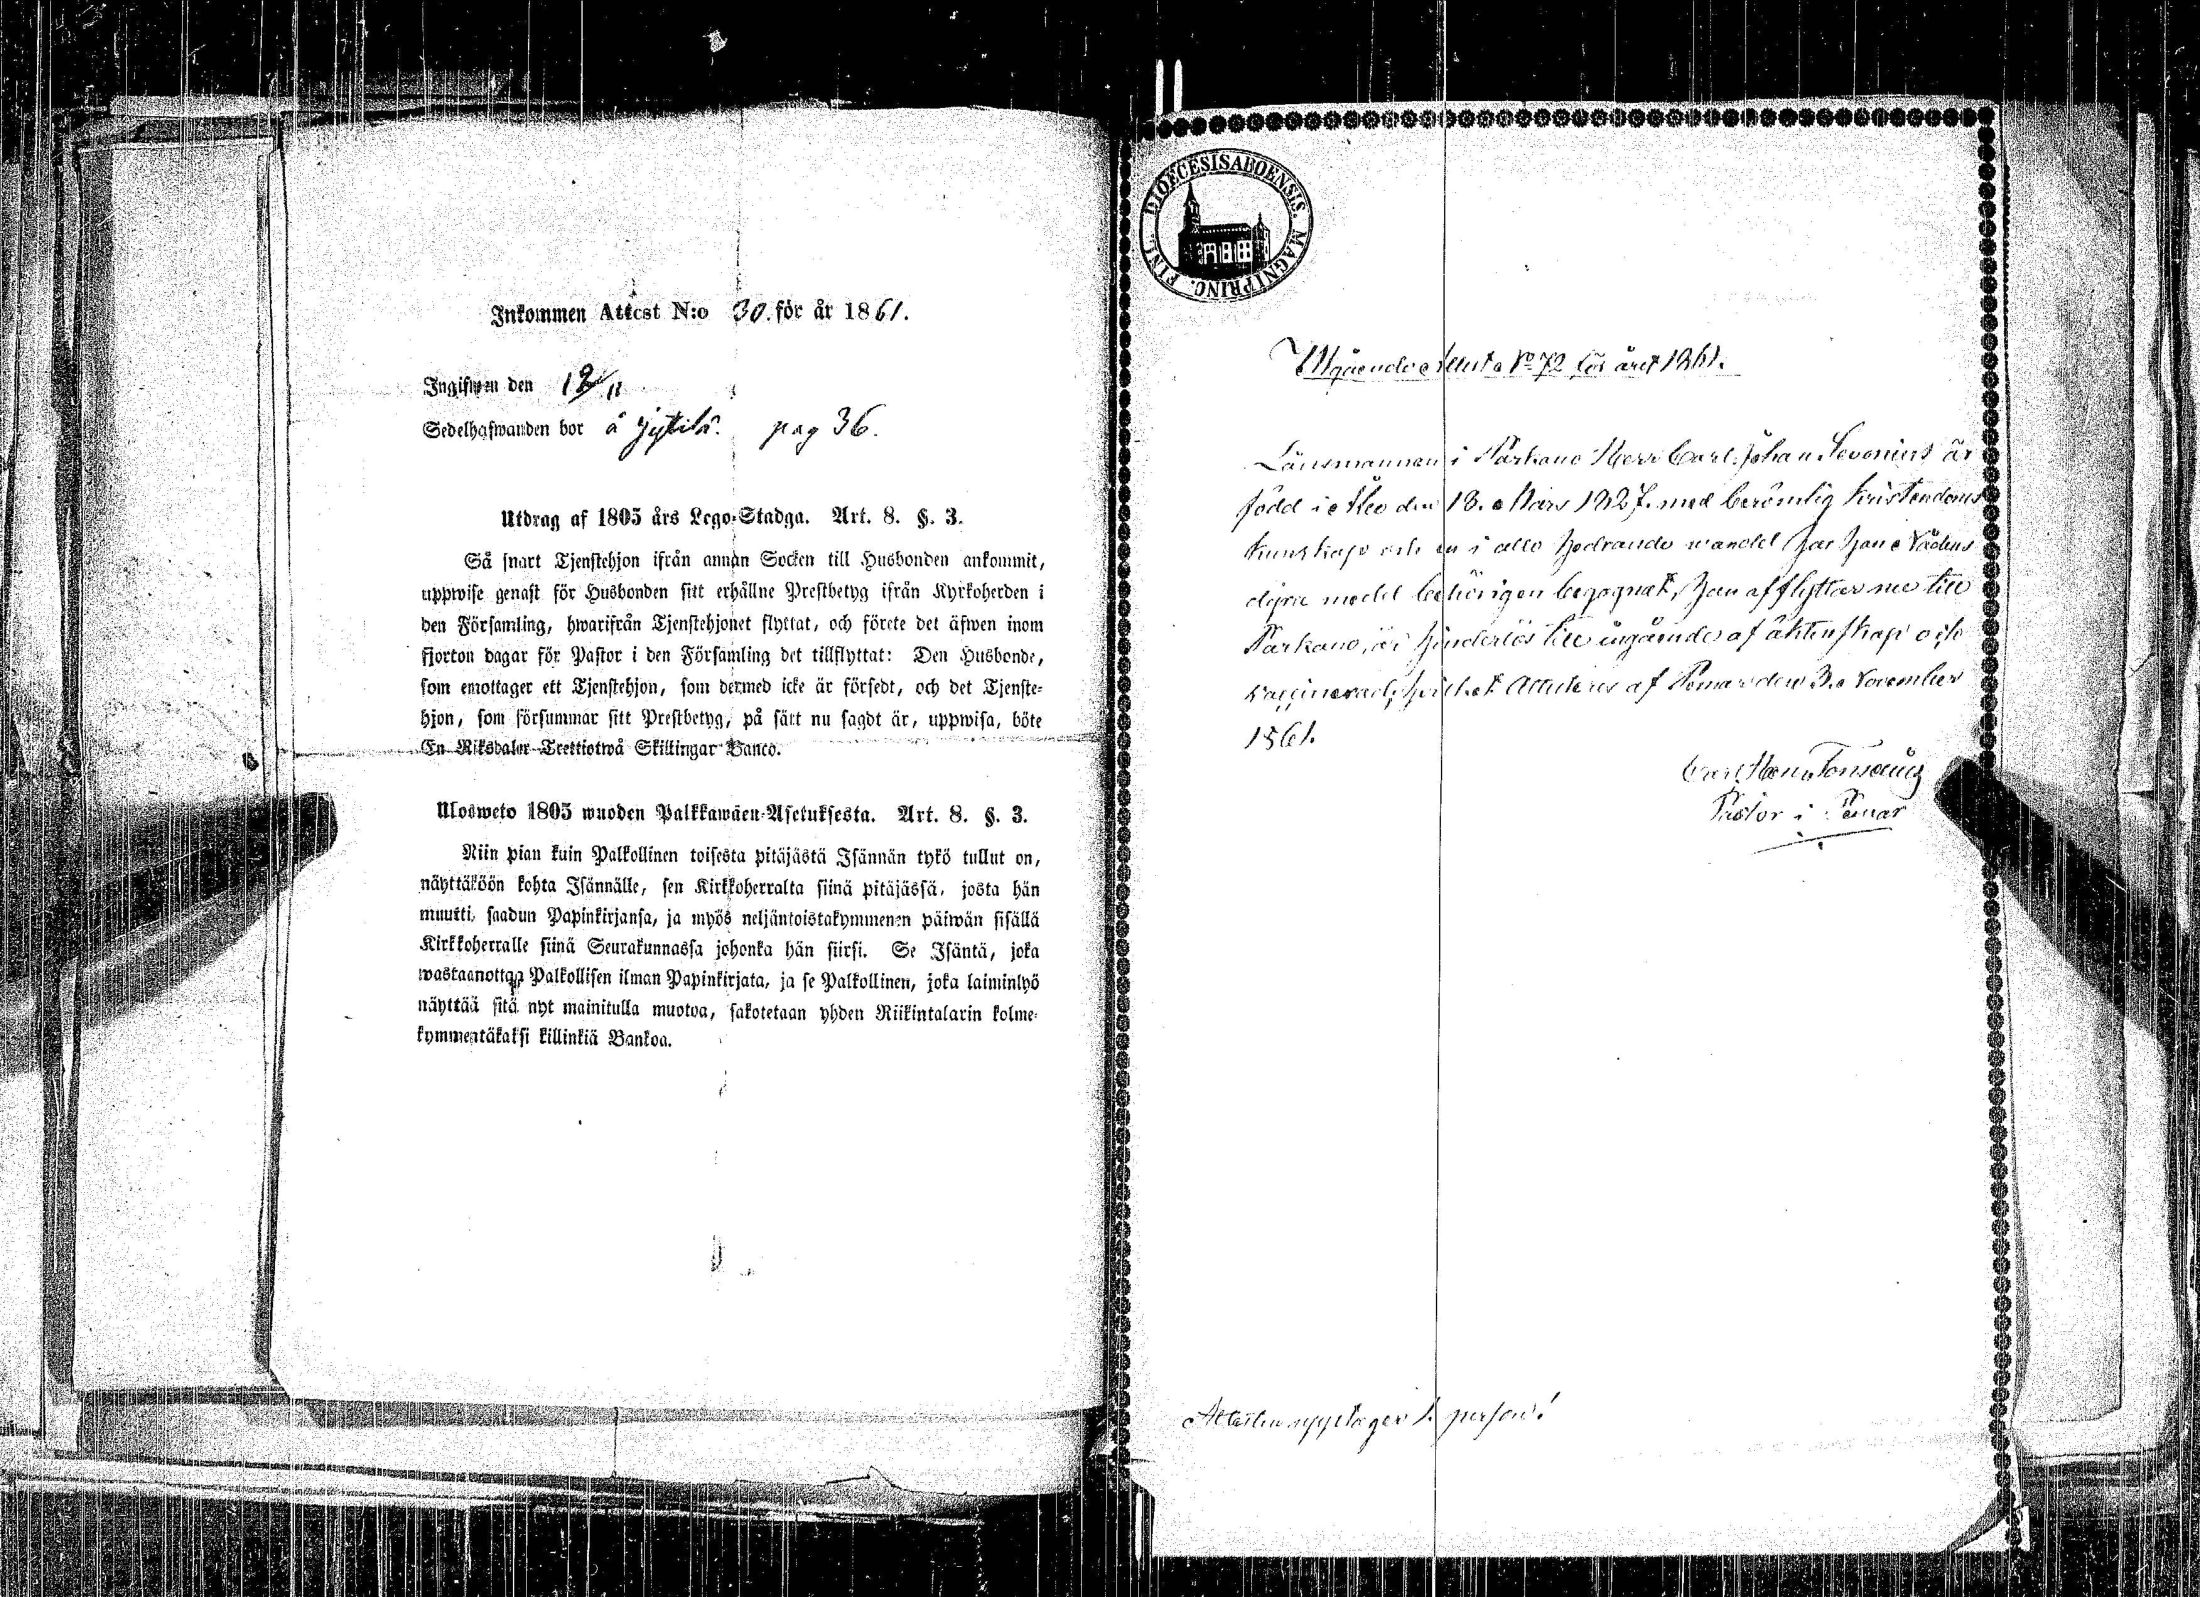 Inkommen Attest N:o 30. för år 1861.
Ingifwen den 12/11
Sedelhafwanden bor å Jyttilä. pag 36.
Utdrag af 1805 års Lego-Stadga. Art. 8. §. 3.
Så snart Tjenstehjon ifrån annan Socken till Husbonden ankommit,
uppwise genast för Husbonden sitt erhållne Prestbetyg ifrån Kyrkoherden i
den Församling, hwarifrån Tjenstehjonet flyttat, och förete det äfwen inom
fjorton dagar för Pastor i den Församling det tillflyttat: Den Husbonde,
som emottager ett Tjenstehjon, som dermed icke är försedt, och det Tjenste-
hjon, som försummar sitt Prestbetyg, på sätt nu sagdt är, uppwisa, böte
En Riksdaler Trettiotwå Skillingar Banco.
Ulosweto 1805 wuoden Palkkawäen-Asetuksesta. Art. 8. §. 3.
Niin pian kuin Palkollinen toisesta pitäjästä Isännän tykö tullut on,
näyttäköön kohta Isännälle, sen Kirkkoherralta siinä pitäjässä, josta hän
muutti, saadun Papinkirjansa, ja myös neljäntoistakymmenen päiwän sisällä
Kirkkoherralle siinä Seurakunnassa johonka hän siirsi. Se Isäntä, joka
wastaanottaa Palkollisen ilman Papinkirjata, ja se Palkollinen, joka laiminlyö
näyttää sitä nyt mainitulla muotoa, sakotetaan yhden Riikintalarin kolme-
kymmentäkaksi killinkiä Bankoa.
DIOECESIS ABOENSIS. MAGNI PRINC. FINL.
Utgående Attest No 72 för året 1861.
Länsmannen i Parkano Herr Carl Johan är
född i den 13. Mars 1827. med berömlig kristendoms
kunskap och en i allo hedrande wandel har han Nådens
dyra medel behörigen begagnat, han afflyttar nu till
Parkano, är hinderlös till ingående af äktenskap och
vaccinerad; hvilket Attesteras af Pemar den 3. November
1861.
Carl
Pastor i Pemar
Attesten upptager 1. person!